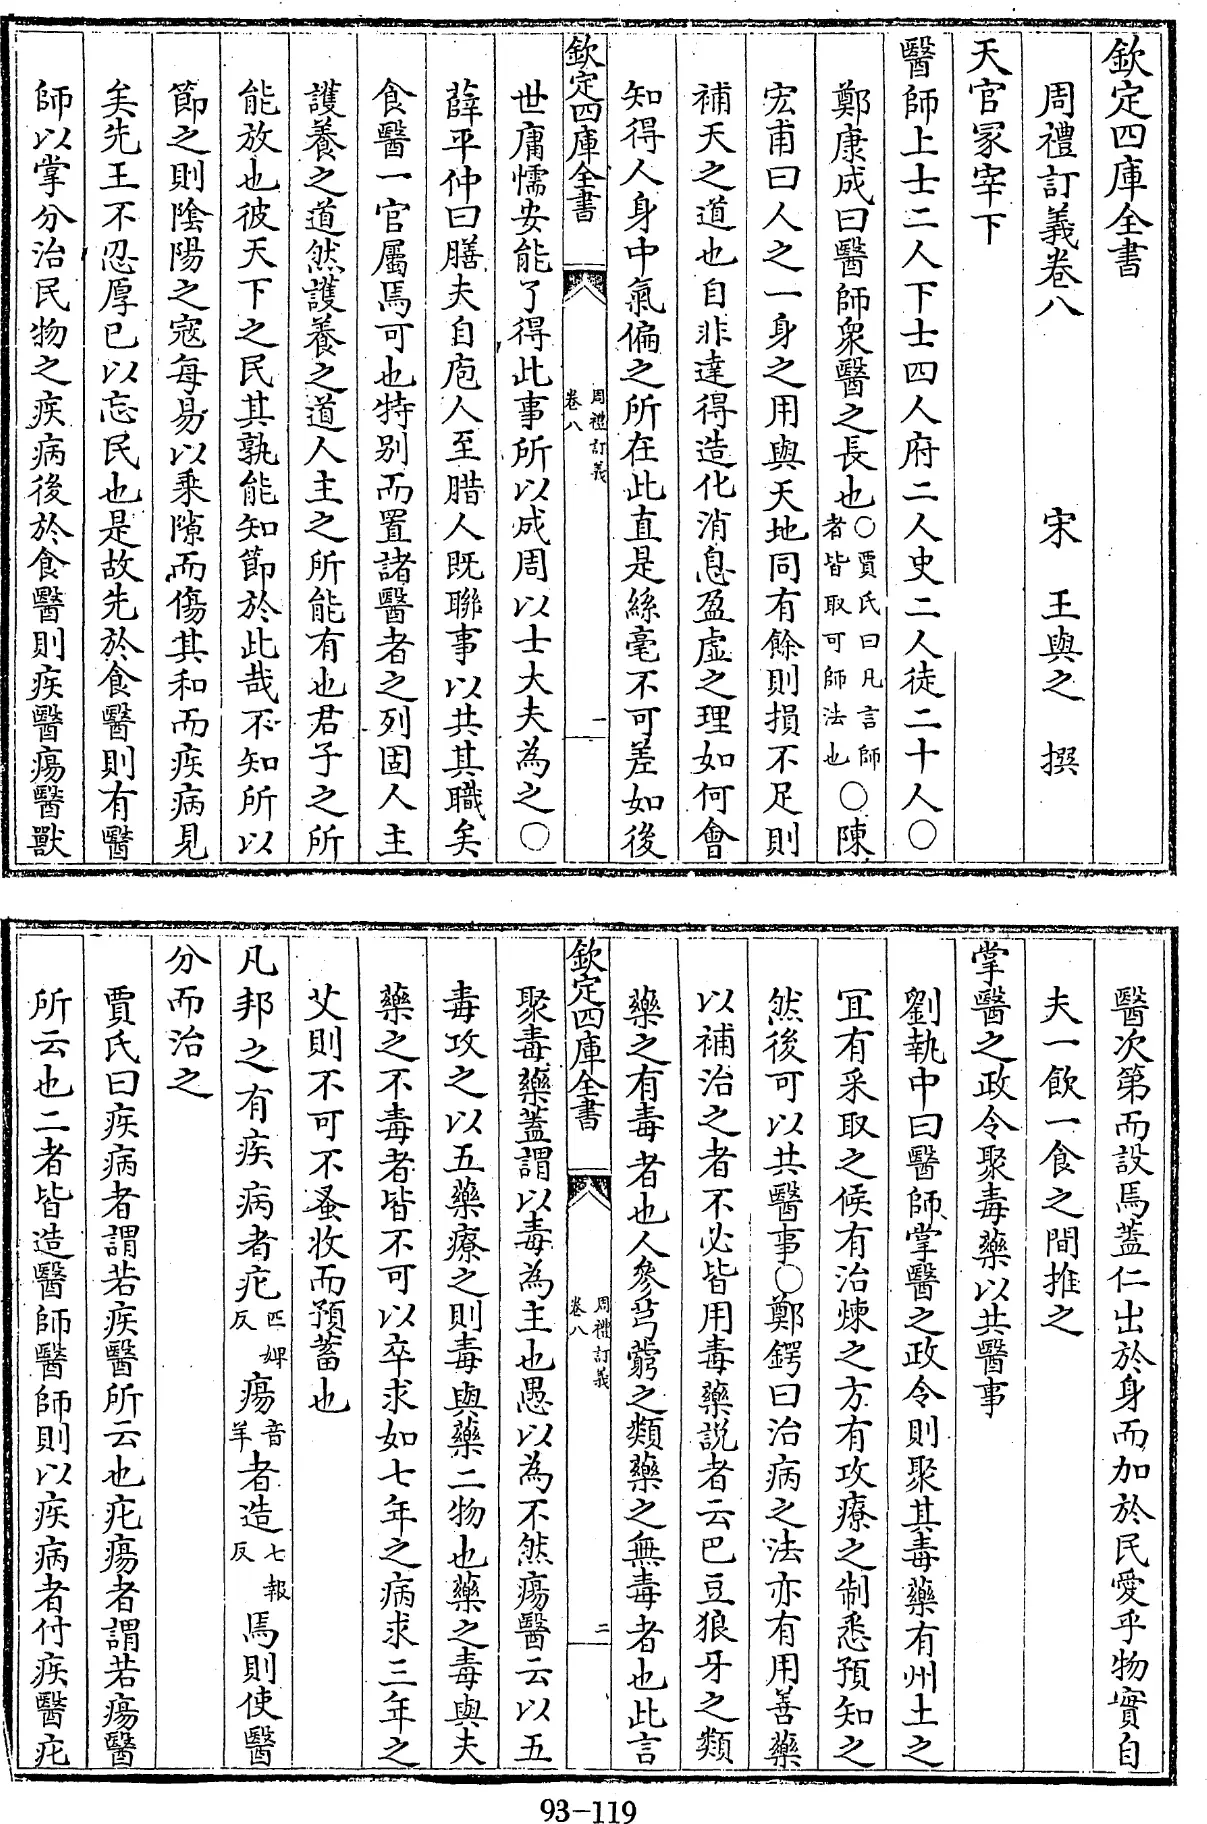 欽定四庫全書
周禮訂義卷八
宋 王與之 撰
天官冢宰下
醫師上士二人下士四人府二人史二人徒二十人○
鄭康成曰醫師衆醫之長也○賈氏曰凡言師者皆取可師法也○陳
宏甫曰人之一身之用與天地同有餘則損不足則
補天之道也自非達得造化消息盈虛之理如何會
知得人身中氣偏之所在此直是絲毫不可差如後
欽定四庫全書
周禮訂義
卷八
一
世庸懦安能了得此事所以成周以士大夫為之○
薛平仲曰膳夫自庖人至腊人既聯事以共其職矣
食醫一官屬焉可也特別而置諸醫者之列固人主
護養之道然護養之道人主之所能有也君子之所
能放也彼天下之民其孰能知節於此哉不知所以
節之則陰陽之寇每易以乘隙而傷其和而疾病見
矣先王不忍厚已以忘民也是故先於食醫則有醫
師以掌分治民物之疾病後於食醫則疾醫瘍醫獸
醫次第而設焉蓋仁出於身而加於民愛乎物實自
夫一飲一食之間推之
掌醫之政令聚毒藥以共醫事
劉執中曰醫師掌醫之政令則聚其毒藥有州土之
宜有采取之候有治煉之方有攻療之制悉預知之
然後可以共醫事○鄭鍔曰治病之法亦有用善藥
以補治之者不必皆用毒藥説者云巴豆狼牙之類
藥之有毒者也人參芎藭之類藥之無毒者也此言
欽定四庫全書
周禮訂義
卷八
二
聚毒藥蓋謂以毒為主也愚以為不然瘍醫云以五
毒攻之以五藥療之則毒與藥二物也藥之毒與夫
藥之不毒者皆不可以卒求如七年之病求三年之
艾則不可不蚤收而預蓄也
凡邦之有疾病者疕匹婢反瘍音羊者造七報反焉則使醫
分而治之
賈氏曰疾病者謂若疾醫所云也疕瘍者謂若瘍醫
所云也二者皆造醫師醫師則以疾病者付疾醫疕
93-119